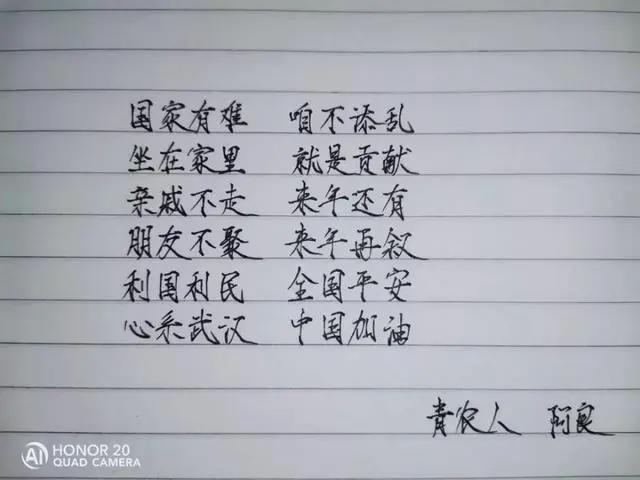 国家有难 咱不添乱
坐在家里 就是贡献
亲戚不走 来年还有
朋友不聚 来年再叙
利国利民 全国平安
心系武汉 中国加油
青农人 阿良
AI HONOR 20
QUAD CAMERA